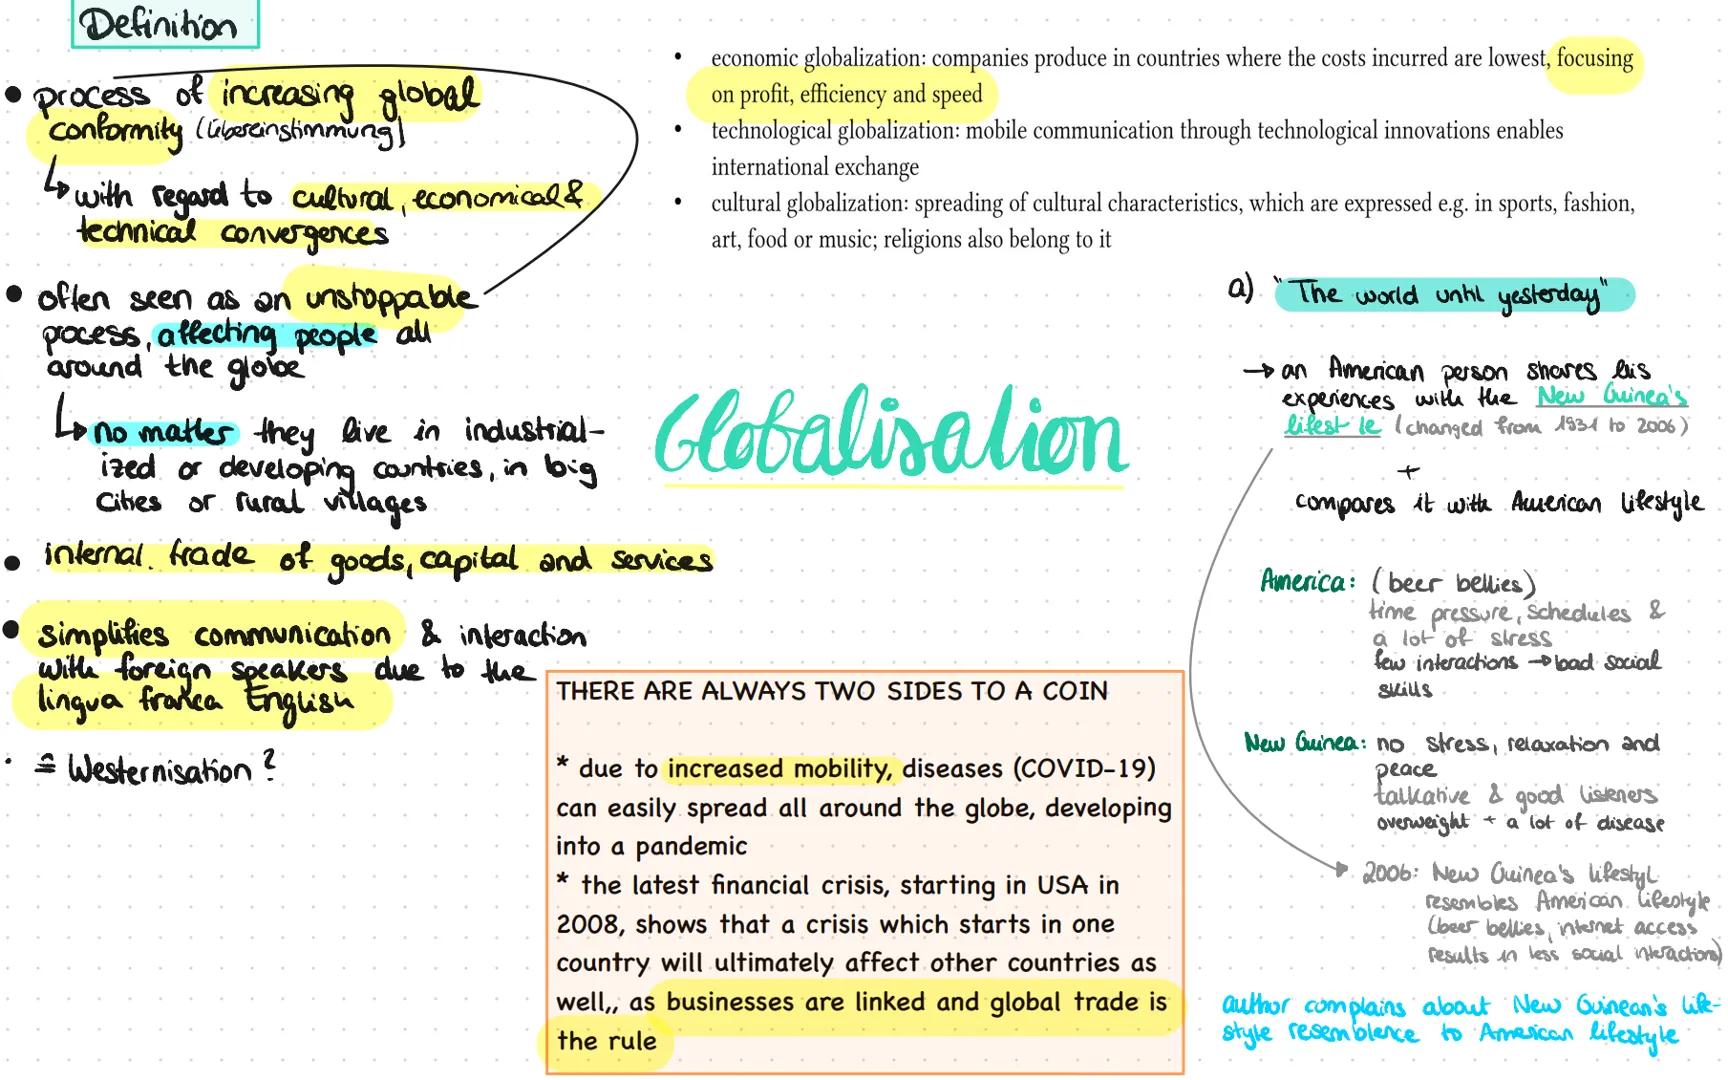 Definition
• process of increasing global
conformity (Übereinstimmung)
↳ with regard to cultural, economical &
technical convergences
• often seen as an unstoppable
process, affecting people all
around the globe
↳ no matter they live in industrial-
ized or developing countries, in big
cities or rural villages
• internal. trade of goods, capital and services
• simplifies communication & interaction
with foreign speakers due to the
lingua franca English
· ≙ Westernisation?
• economic globalization: companies produce in countries where the costs incurred are lowest, focusing
on profit, efficiency and speed
• technological globalization: mobile communication through technological innovations enables
international exchange
• cultural globalization: spreading of cultural characteristics, which are expressed e.g. in sports, fashion,
art, food or music; religions also belong to it
Globalisation
THERE ARE ALWAYS TWO SIDES TO A COIN
* due to increased mobility, diseases (COVID-19)
can easily spread all around the globe, developing
into a pandemic
* the latest financial crisis, starting in USA in
2008, shows that a crisis which starts in one
country will ultimately affect other countries as
well,, as businesses are linked and global trade is
the rule
a) "The world until yesterday"
→ an American person shares his
experiences with the New Guinea's
lifest le (changed from 1931 to 2006)
+
compares it with American lifestyle
America: (beer bellies)
time pressure, schedules &
a lot of stress
few interactions → bad social
skills
New Guinea: no stress, relaxation and
peace
talkative & good listeners
overweight + a lot of disease
2006: New Guinea's lifestyl
resembles American lifestyle
(beer bellies, internet access
results in less social interactions)
author complains about New Guinean's life-
style resemblence to American lifestyle